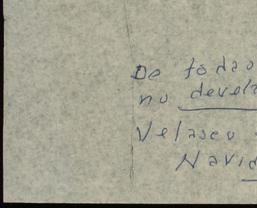 De todao
no devel
Velasco
Navid